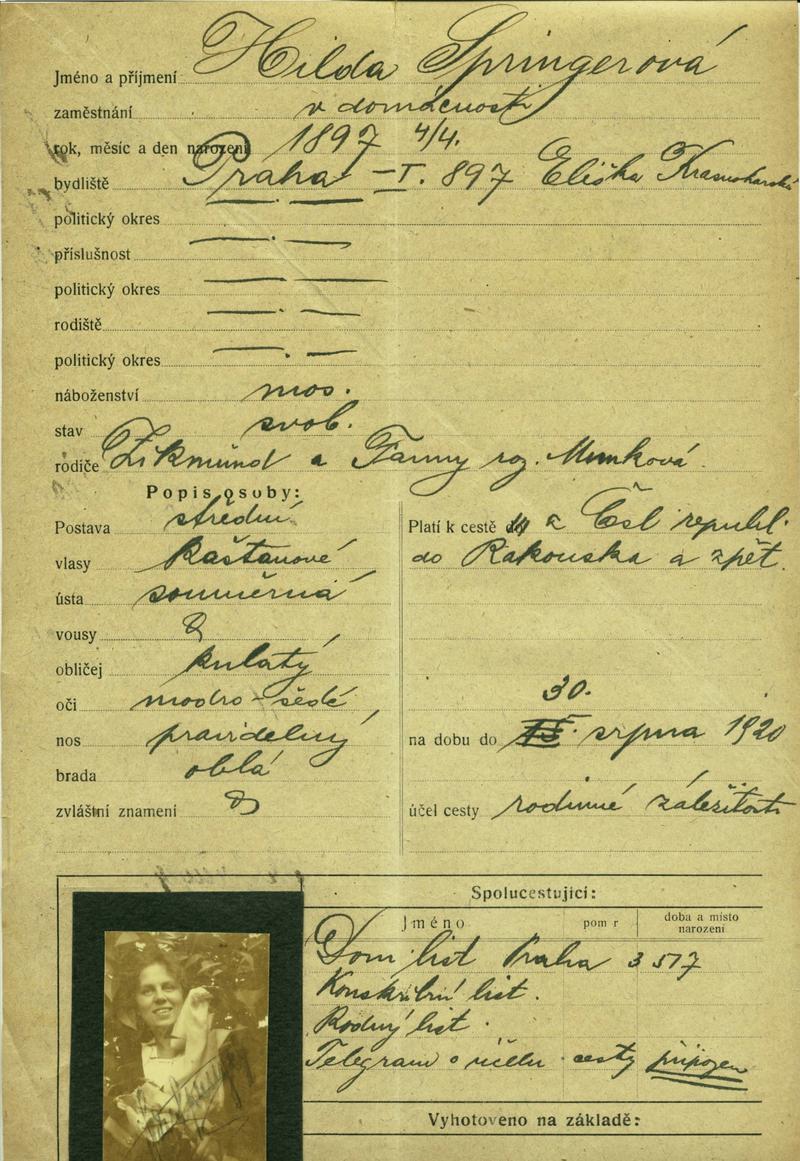 Jméno a příjmení Hilda Springerová
zaměstnání v domácnosti
rok, měsíc a den narození 1897 4/4.
bydliště Praha - I. 897 Eliška Krasnohorské
politický okres
příslušnost —·—
politický okres — —
rodiště —·—
politický okres —·—
náboženství mos.
stav svob.
rodiče Zikmund a Fanny roz. Munková.
Popis osoby:
Postava střední
vlasy kaštanové
ústa souměrná
vousy
obličej kulatý
oči modro-šedé
nos pravidelný
brada oblá
zvláštní znamení
Platí k cestě z Čsl republ.
do Rakouska a zpět.
30.
na dobu do 15. srpna 1920
účel cesty rodinné záležitosti
Spolucestující:
Jméno pom r doba a místo
narození
Dom. list Praha 3517
Konskribní list.
Rodný list.
Telegram o účelu cesty připojen
Vyhotoveno na základě: